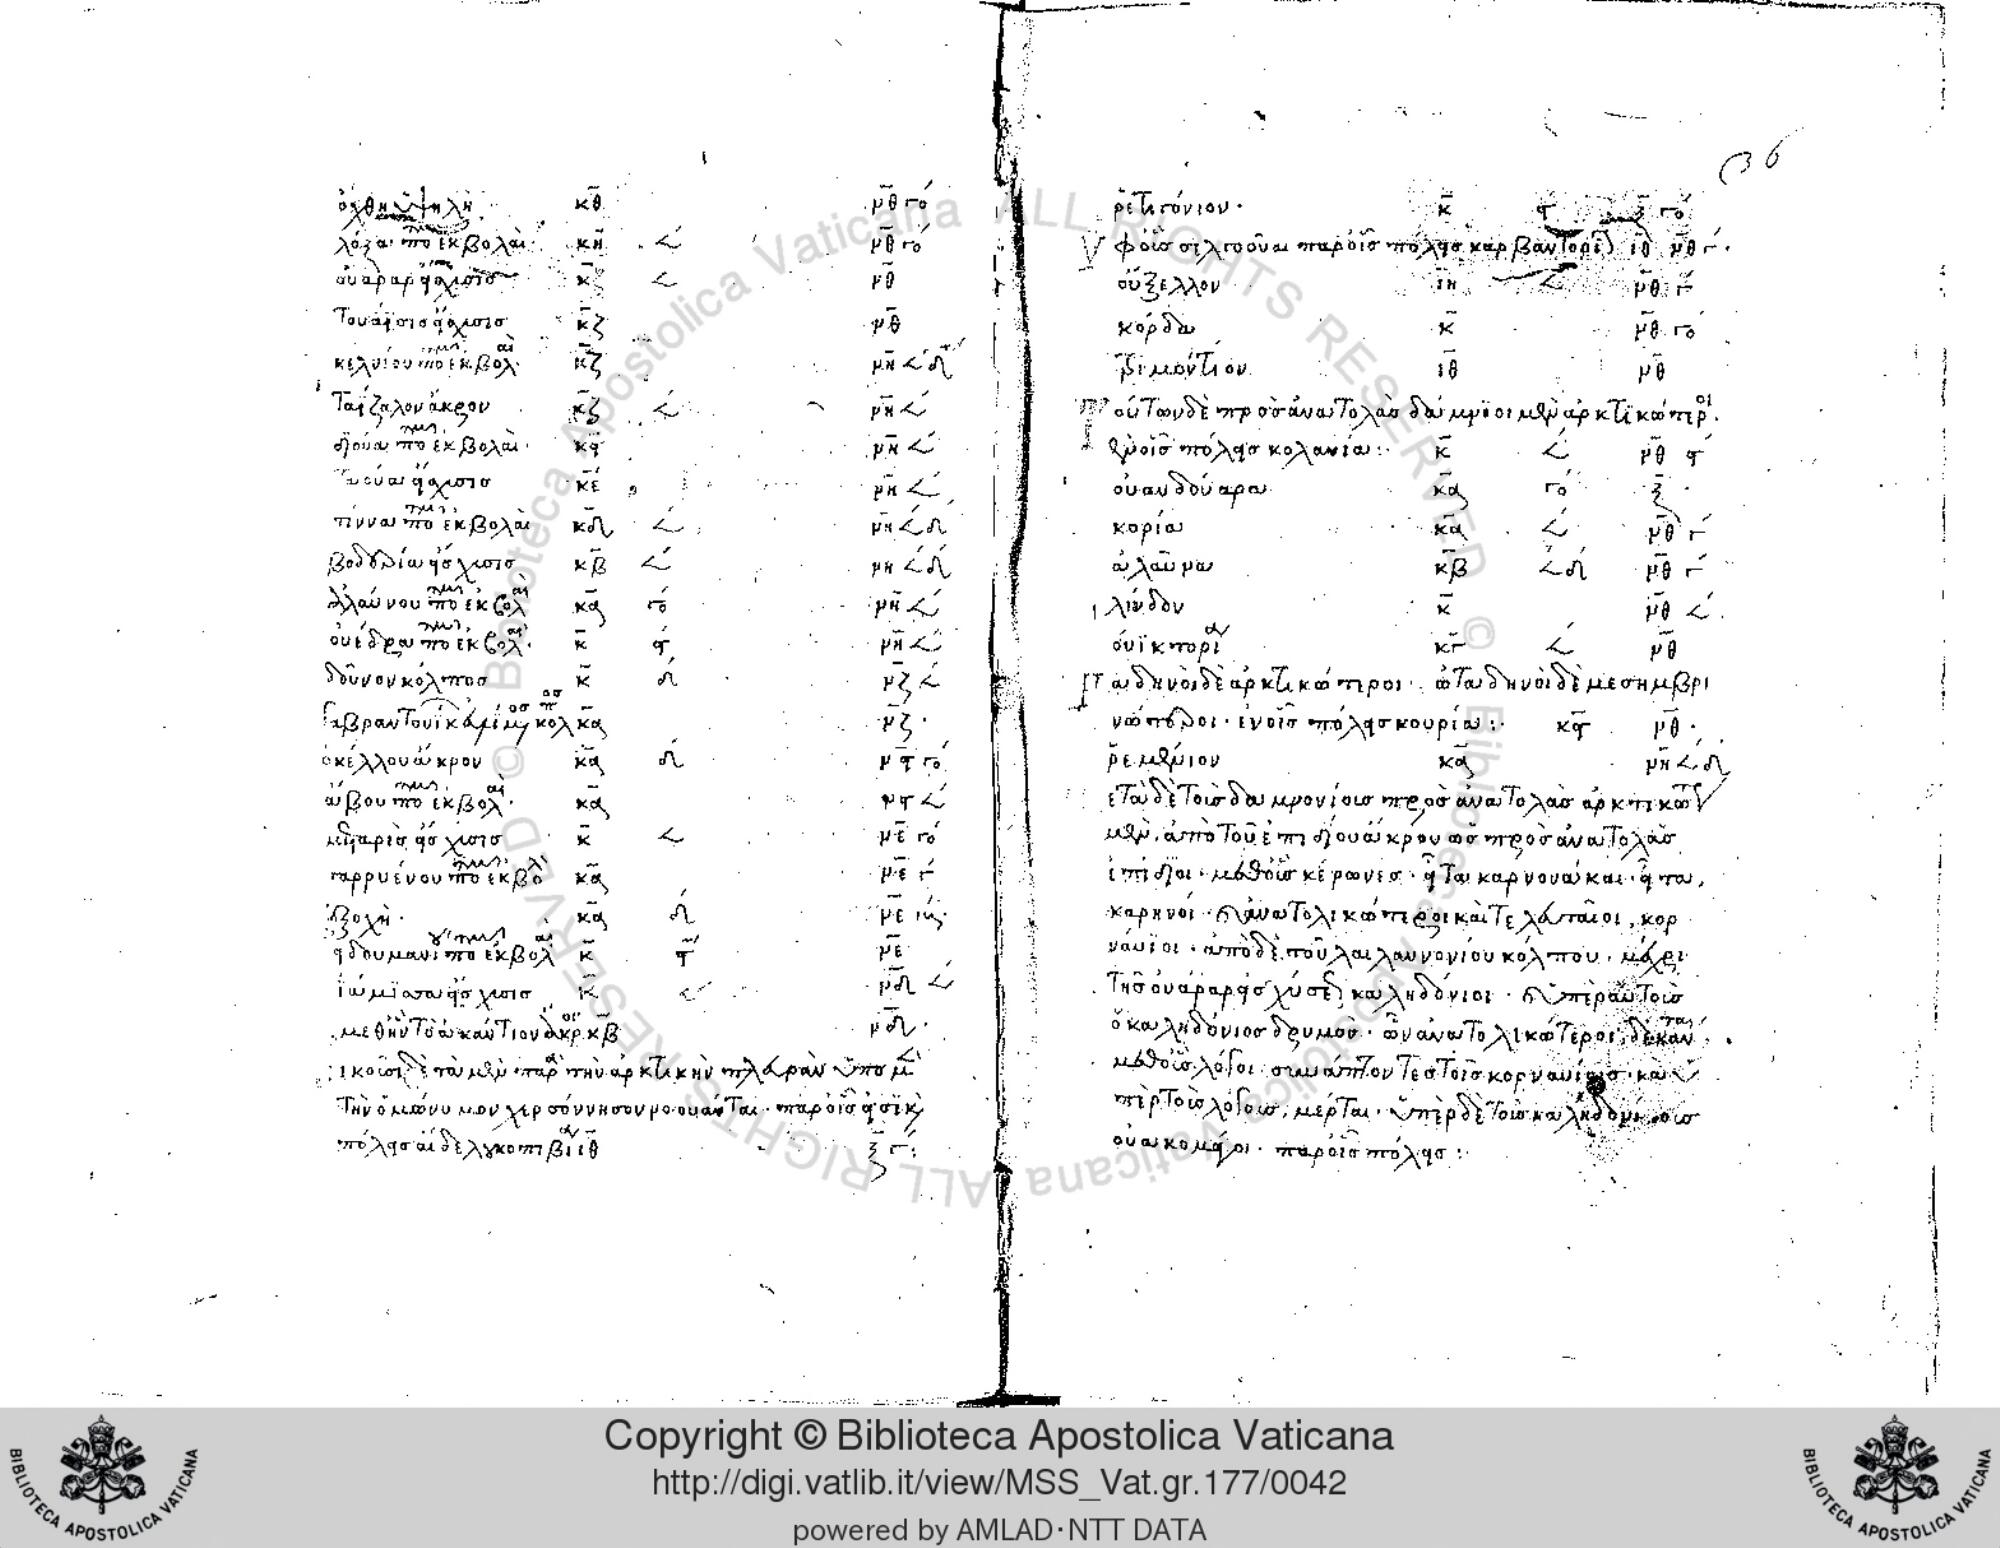 ὄχθη ὑψηλὴ κθ μθ γο
λόξα πο ἐκβολαὶ κη 𐅵 μθ γο
οὐαραρ εἴσχισις κζ 𐅵 μθ
τούαισις εἴσχισις κζ μθ
κελνίου πο ἐκβολαὶ κζ μη 𐅵 δ
ταίζαλον ἄκρον κζ 𐅵 μη 𐅵
δηούα πο ἐκβολαὶ κϛ μη 𐅵
ταούα εἴσχισις κε μη 𐅵
τίννα πο ἐκβολαὶ κδ 𐅵 μη 𐅵 δ
βοδερία εἴσχισις κβ 𐅵 μη 𐅵 δ
ἀλαύνου πο ἐκβολαὶ κα γο μη 𐅵
οὐέδρα πο ἐκβολαὶ κ ϛ μη 𐅵
δοῦνον κόλπος κ δ μζ 𐅵
κολπ κα μζ
ὀκέλλου ἄκρον κα δ μϛ γο
ἄβου πο ἐκβολαὶ κα μϛ 𐅵
μεταρὶς εἴσχισις κ 𐅵 με γο
γαρρυένου πο ἐκβολαὶ κα με γ
ἐξοχὴ κα δ με
εἰδουμανία πο ἐκβολαὶ κ ϛ με
ἰάμισσα εἴσχισις κ 𐅵 μδ 𐅵
μεθ ἣν τὸ ἀκάντιον ἄκρον κβ μδ
οἰκοῦσι δὲ τὰ μὲν παρὰ τὴν ἀρκτικὴν πλευρὰν ὑπὸ μὲν
τὴν ὁμώνυμον χερσόννησον νοουάνται παρ οἷς εἰσὶ καὶ
πόλεις αἵδε λγκοπιβία ιθ ξ γ
ῥετιγόνιον κ ϛ ξ γο
ὑφ οἷς σελγοοῦαι παρ οἷς πόλεις καρβαντορι ιθ μθ γ
οὔξελλον ιη 𐅵 μθ γ
κόρδα κ μθ γο
τριμόντιον ιθ μθ
τούτων δὲ πρὸς ἀνατολὰς δάμνιοι μὲν ἀρκτικώτεροι
ἐν οἷς πόλεις κολανία κ 𐅵 μθ ϛ
οὐανδούαρα κα γο ξ
κορία κα 𐅵 μθ γ
ἀλαῦνα κβ 𐅵 δ μθ γ
λίνδον κ μθ 𐅵
οὐϊκτορία κγ 𐅵 μθ
γαδηνοὶ δὲ ἀρκτικώτεροι ὠταδηνοὶ δὲ μεσημβρι
νώτεροι ἐν οἷς πόλεις κουρία κϛ μθ
βρεμένιον κα μη 𐅵 δ
μετὰ δὲ τοὺς δαμνονίους πρὸς ἀνατολὰς ἀρκτικώτεροι
μὲν ἀπὸ τοῦ ἐπιδίου ἄκρου ὡς πρὸς ἀνατολὰς
ἐπίδιοι μεθ οὓς κέρωνες εἶτα καρνονάκαι εἶτα
καρηνοί καὶ ἀνατολικώτεροι καὶ τελευταῖοι κορ
νάυϊοι ἀπὸ δὲ τοῦ λαιλαννονίου κόλπου μέχρι
τῆς οὐάραρ εἰσχύσεως καληδόνιοι καὶ ὑπὲρ αὐτοὺς
ὁ καληδόνιος δρυμός ὧν ἀνατολικώτεροι δεκάνται
μεθ οὓς λόγοι συνάπτοντες τοῖς κορναυίοις καὶ ὑ
πὲρ τοὺς λόγους μέρται ὑπὲρ δὲ τοὺς καληδονίους
οὐακομάγοι παρ οἷς πόλεις
36
Copyright © Biblioteca Apostolica Vaticana
http://digi.vatlib.it/view/MSS_Vat.gr.177/0042
powered by AMLAD·NTT DATA
BIBLIOTECA APOSTOLICA VATICANA
BIBLIOTECA APOSTOLICA VATICANA